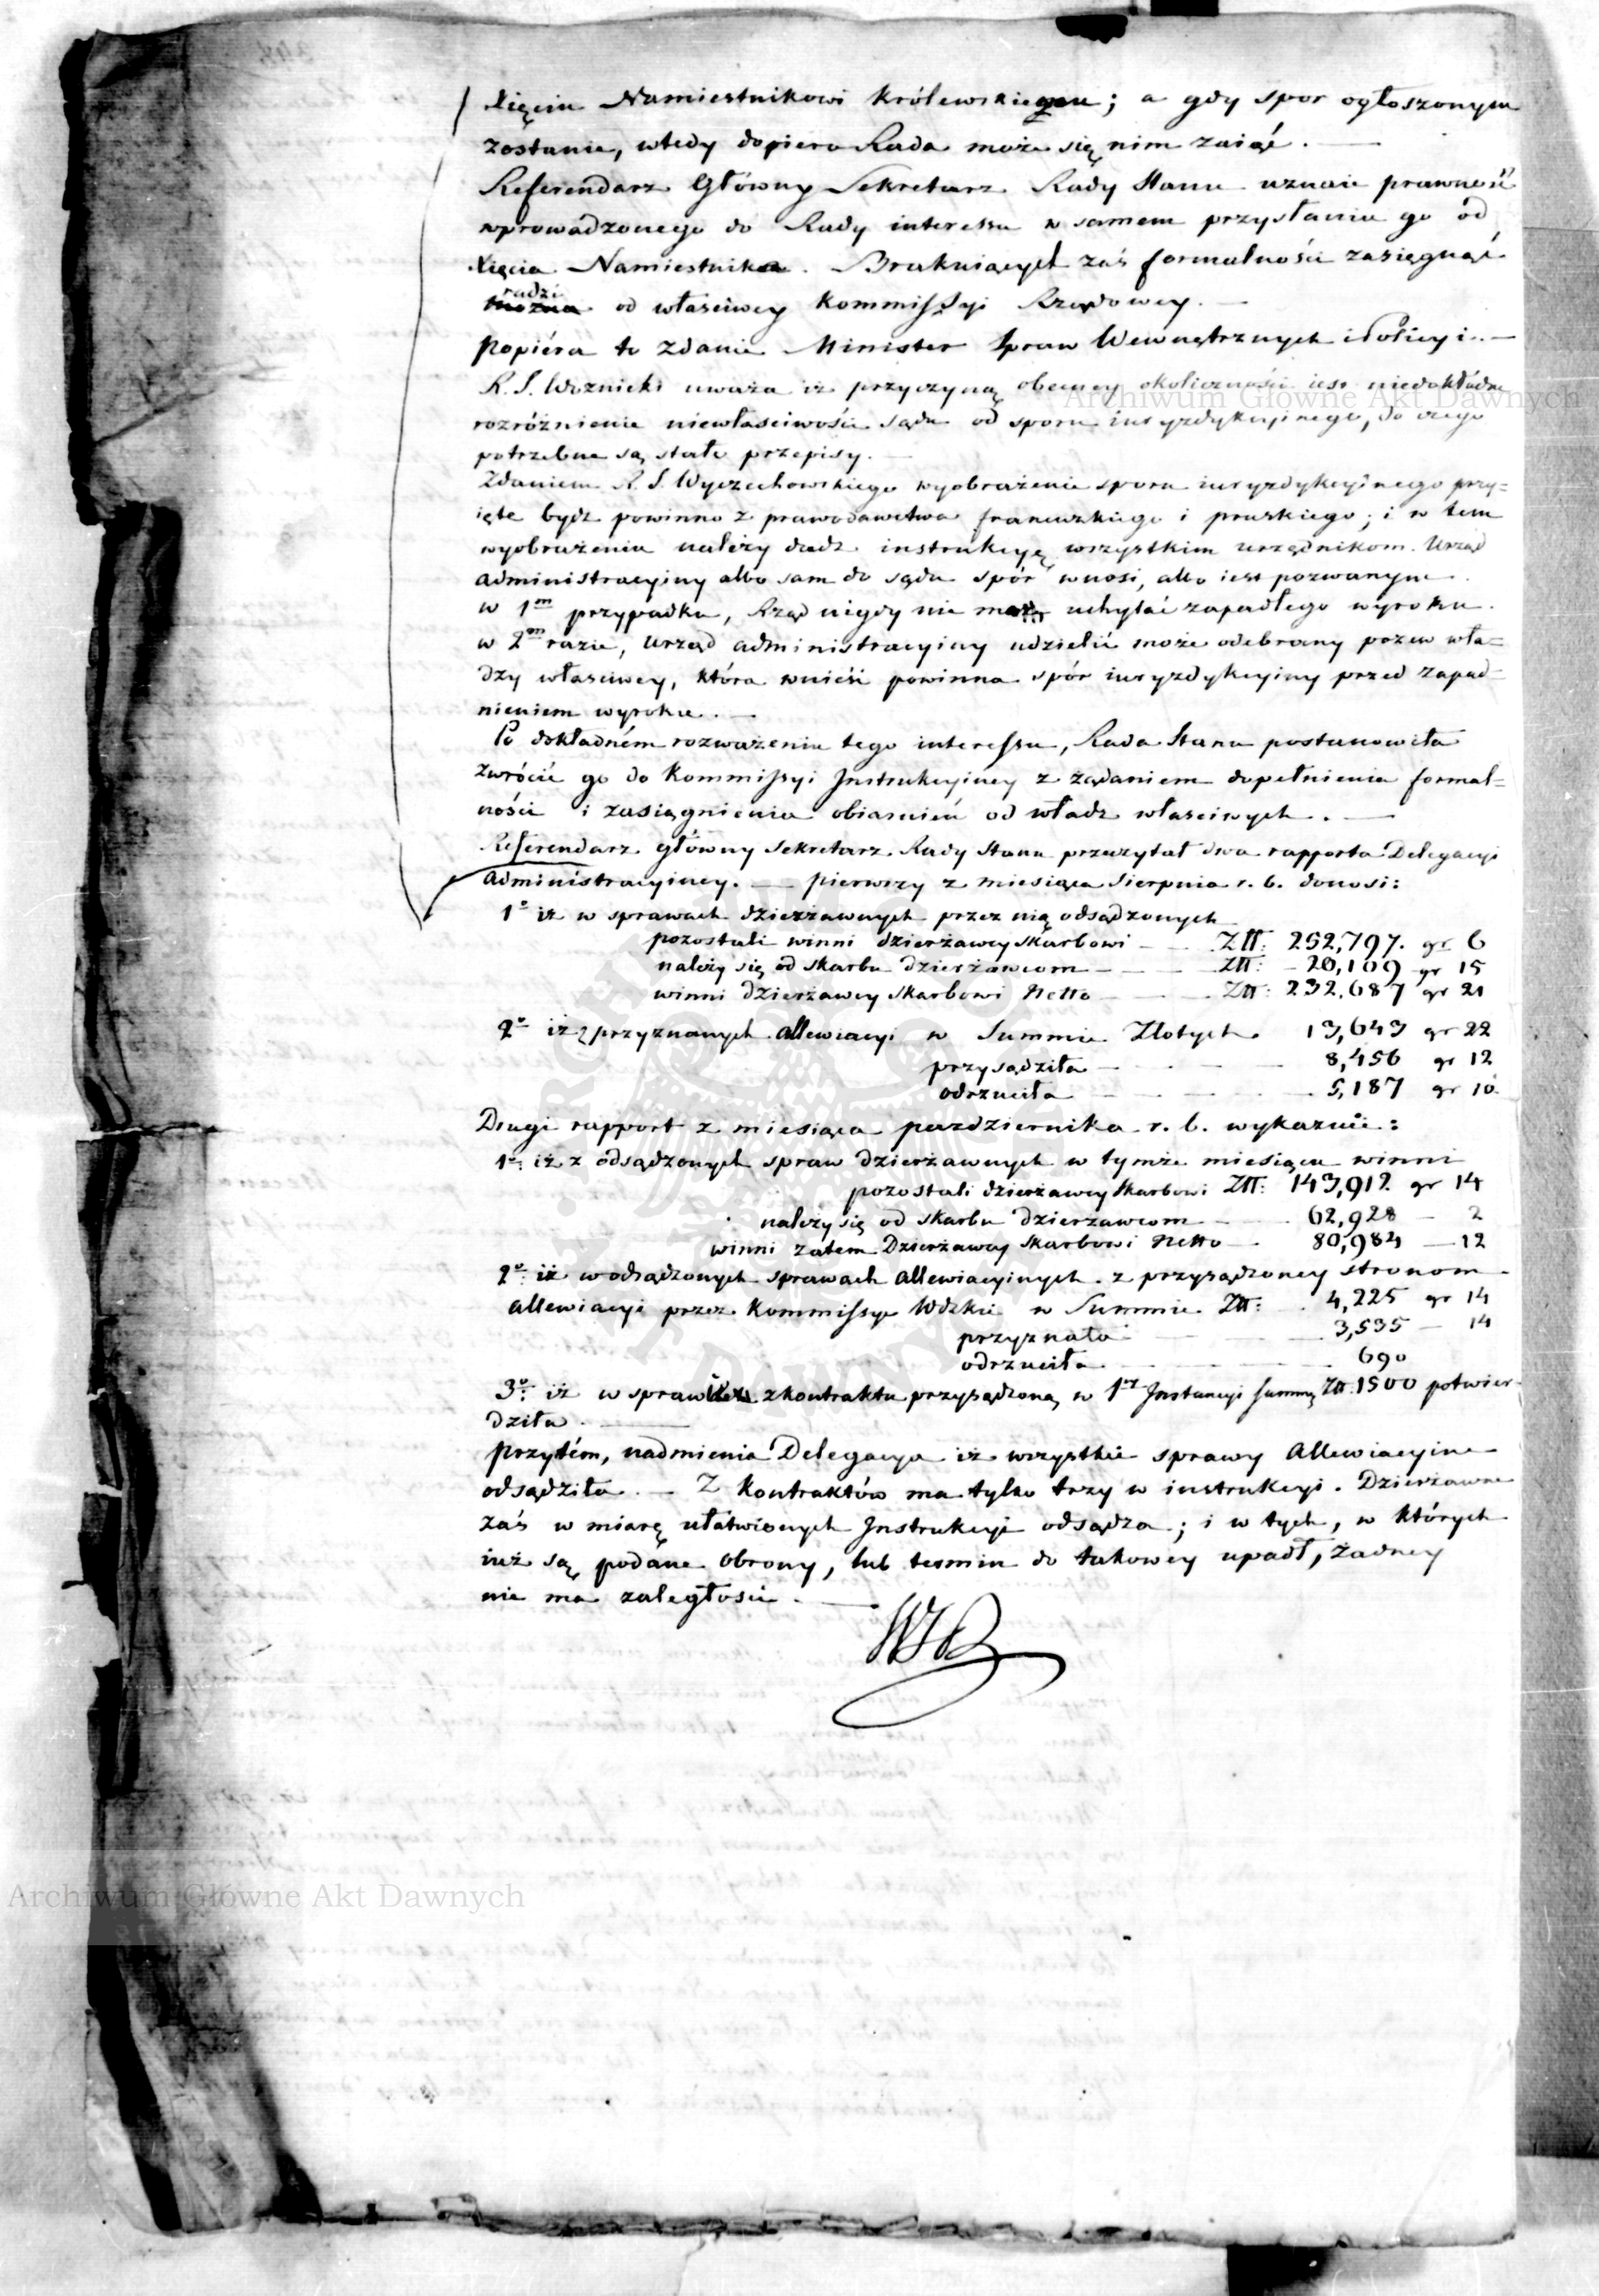 Xięciu Namiestnikowi Królewskiemu; a gdy spor ogłoszonym
zostanie, wtedy dopiero Rada może się nim zaiąć. —
Referendarz Główny Sekretarz Rady Stanu uznaie prawność
wprowadzonego do Rady interessu w samem przysłaniu go od
Xięcia Namiestnika. Brakuiących zaś formalności zasięgnąć
radzi
można od właściwey Kommissyi Rządowey. —
Popiéra to zdanie Minister Spraw Wewnętrznych i Policyi. —
R. S. Woznicki uważa iż przyczyną obecney okoliczności iest niedokładne
rozróżnienie niewłaściwości sądu od sporu iuryzdykcyinego, do czego
potrzebne są stałe przepisy. —
Zdaniem R. S. Wyczechowskiego wyobrażenie sporu iuryzdykcyinego przy=
ięte bydź powinno z prawodawstwa francuzkiego i pruskiego; i w tem
wyobrażeniu należy dadź instrukcyę wszystkim urzędnikom. Urząd
administracyiny albo sam do sądu spór wnosi, albo iest pozwanym.
w 1m przypadku, Rząd nigdy nie może uchylać zapadłego wyroku.
w 2m razie, Urząd administracyiny udzielić może odebrany pozew wła=
dzy właściwey, która wnieść powinna spór iuryzdykcyiny przed zapad=
nieniem wyroku. —
Po dokładném rozważeniu tego interessu, Rada Stanu postanowiła
zwrócić go do Kommissyi Instrukcyiney z żądaniem dopełnienia formal=
ności i zasiągnienia obiasnień od władz właściwych. —
Referendarz główny Sekretarz Rady Stanu przeczytał dwa rapporta Delegacyi
Administracyiney. — pierwszy z miesiąca Sierpnia r. b. donosi:
1o iż w sprawach dzierżawnych przez nią odsądzonych
pozostali winni dzierżawcy skarbowi — Złł: 252,797. gr 6
należy się od skarbu dzierżawcom — Złł: 20,109 gr 15
winni dzierżawcy skarbowi Netto — Złł: 232,687 gr 21
2o iż z przyznanych allewiacyi w Summie Złotych. 13,643 gr 22
przysądziła — 8,456 gr 12
odrzuciła — 5,187 gr 10
Drugi rapport z miesiąca pazdziernika r. b. wykazuie:
1o: iż z odsądzonych spraw dzierżawnych w tymże miesiącu winni
pozostali dzierżawcy Skarbowi Złł: 143,912 gr 14
należy się od skarbu dzierżawcom — 62,928 — 2
winni zatem Dzierżawcy Skarbowi Netto — 80,984 — 12
2o: iż w odsądzonych sprawach allewiacyinych z przysądzoney stronom
allewiacyi przez Kommissye Wdzkie w Summie Złł: 4,225 gr 14
przyznała — 3,535 — 14
odrzuciła — 690
3o: iż w sprawie z kontraktu przysądzoną w 1ey Instancyi summę Złł. 1500 potwier-
dziła. —
Przytém, nadmienia Delegacya iż wszystkie sprawy Allewiacyine
odsądziła. — Z Kontraktów ma tylko trzy w instrukcyi. Dzierżawne
zaś w miarę ułatwionych Instrukcyi odsądza; i w tych, w których
iuż są podane obrony, lub termin do takowey upadł, żadney
nie ma zaległości. —
Archiwum Główne Akt Dawnych
Archiwum Główne Akt Dawnych